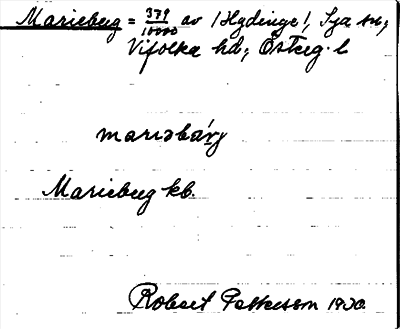 Marieberg = 379/10000 av /Hydinge/, Sya sn;
Vifolka hd; Österg. l
mariəbárj
Marieberg kb.
Robert Pettersson 1930.